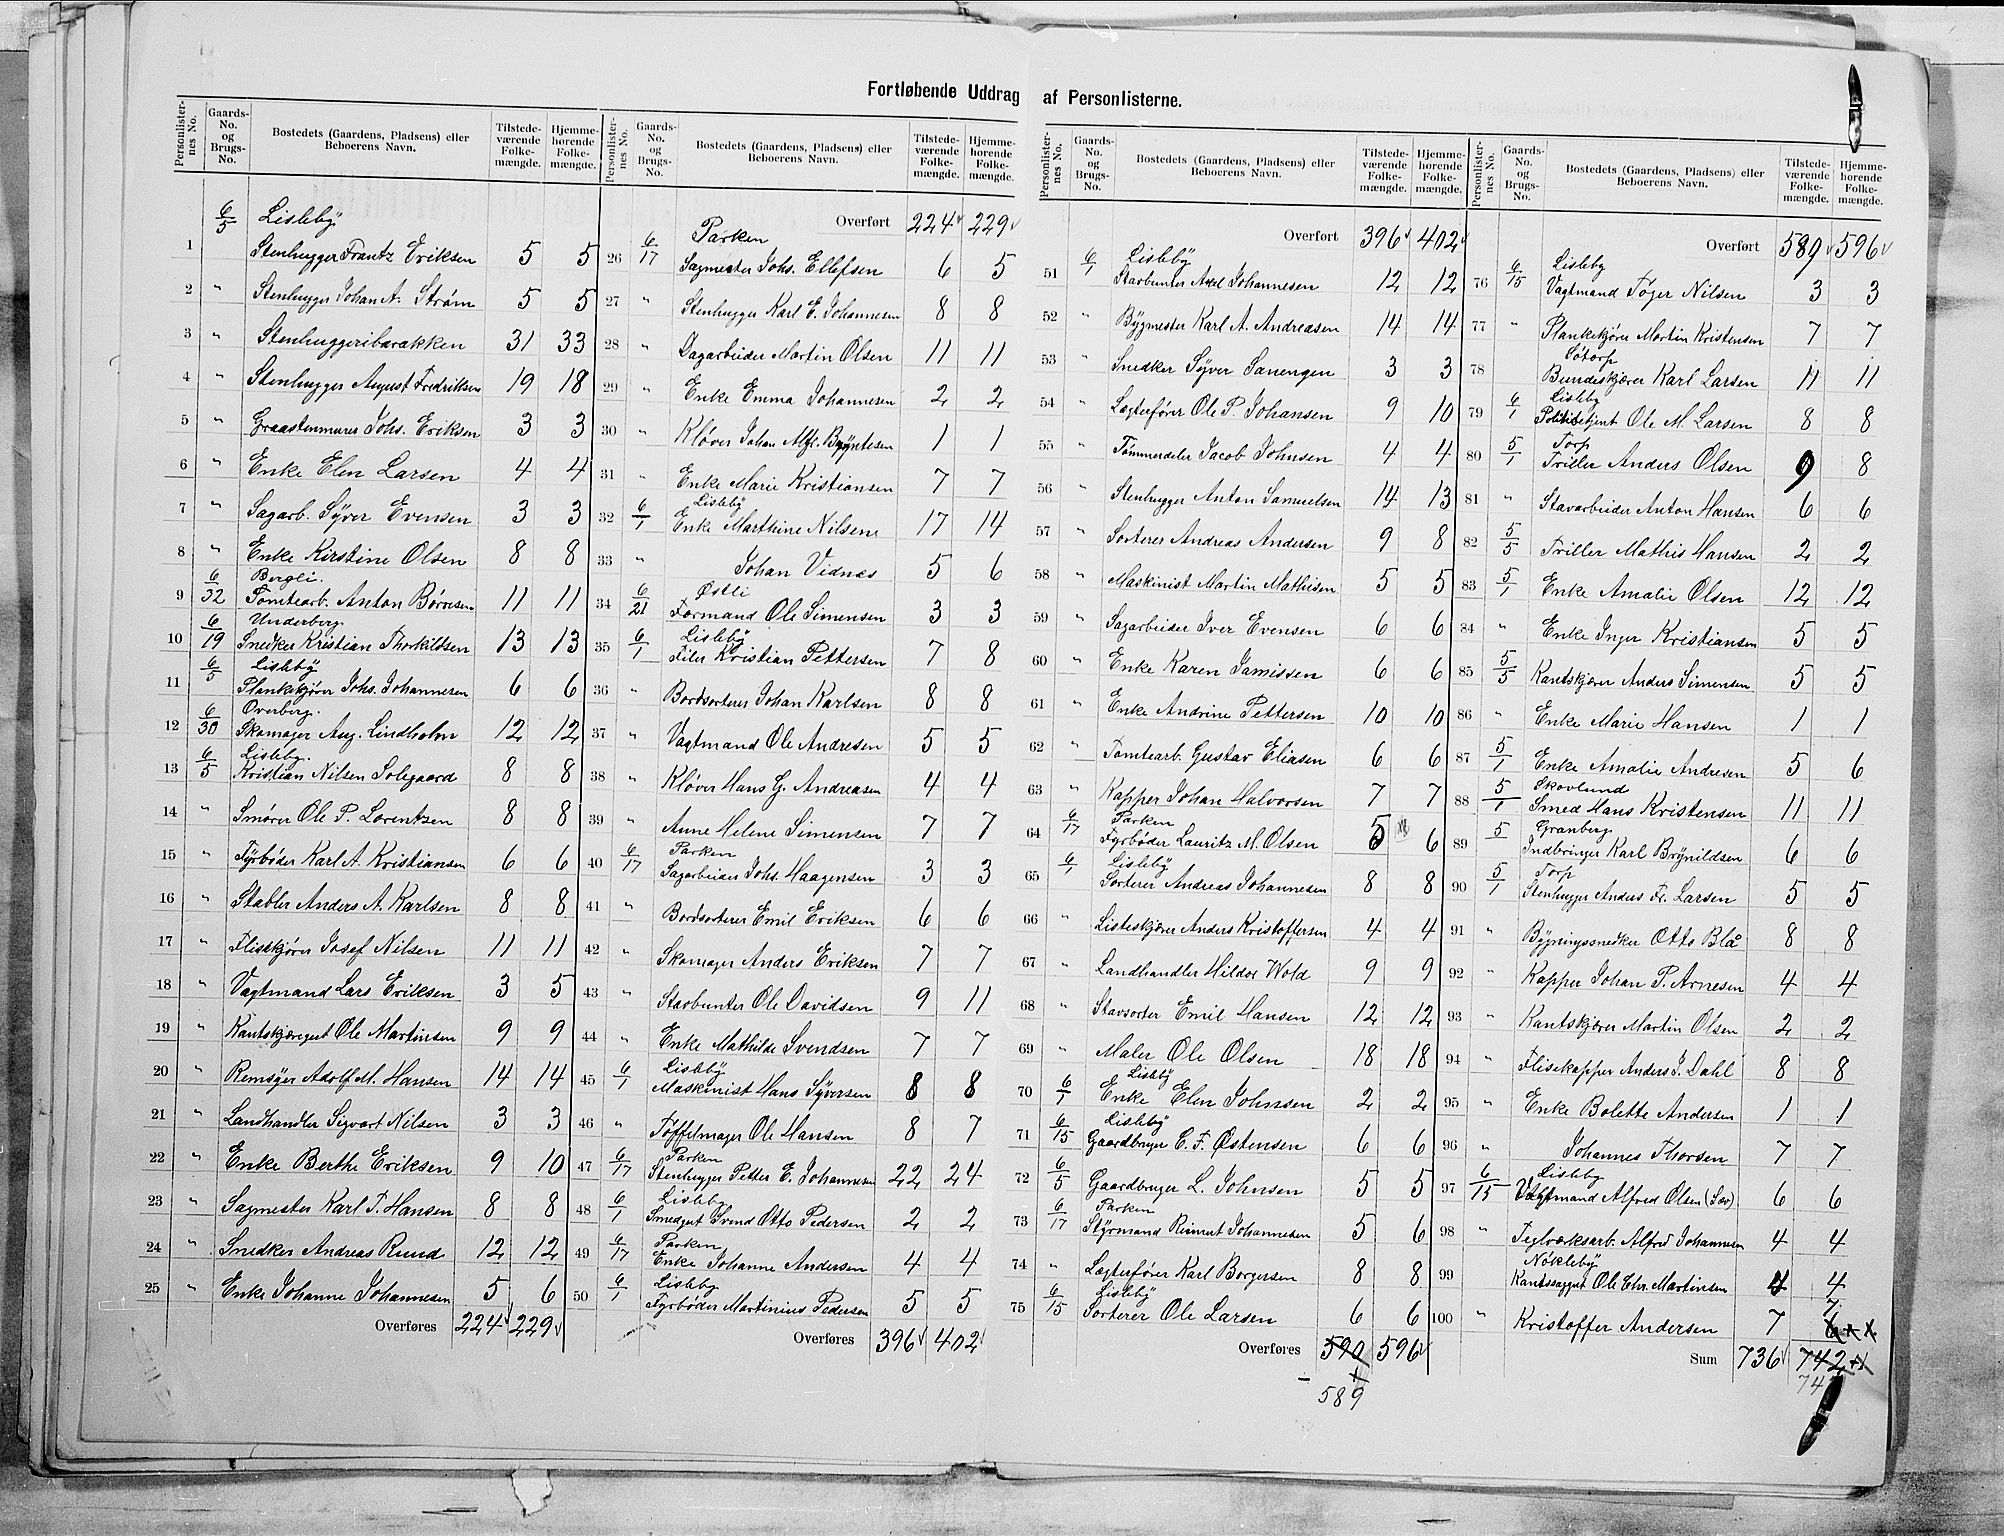 Fortløbende Uddrag af Personlisterne.
Personlister-nes No. | Gaards-No. og Brugs-No. | Bostedets (Gaardens, Pladsens) eller Beboerens Navn. | Tilstede-værende Folke-mængde. | Hjemme-hørende Folke-mængde.
6/5 Lisleby
1 Stenhugger Frantz Eriksen 5 5
2 " Stenhugger Johan A. Strøm 5 5
3 " Stenhuggeribarakken 31 33
4 " Stenhugger August Fredriksen 19 18
5 " Graastenmurer Johs. Eriksen 3 3
6 " Enke Elen Larsen 4 4
7 " Sagarb. Syver Evensen 3 3
8 " Enke Kirstine Olsen 8 8
6/32 Bergli.
9 Tomtearb. Anton Børresen 11 11
6/19 Underberg.
10 Snedker Kristian Thorkildsen 13 13
6/5 Lisleby
11 Plankekjører Johs. Johannesen 6 6
6/30 Overberg.
12 Skomager Aug. Lindholm 12 12
6/5 Lisleby.
13 Kristian Nilsen Solegaard 8 8
14 " Smører Ole P. Lorentzen 8 8
15 " Fyrbøder Karl A. Kristiansen 6 6
16 " Stabler Anders A. Karlsen 8 8
17 " Flisekjører Josef Nilsen 11 11
18 " Vagtmand Lars Eriksen 3 5
19 " Kantskjæregut Ole Martinsen 9 9
20 " Remsyer Adolf M. Hansen 14 14
21 " Landhandler Sigvart Nilsen 3 3
22 " Enke Berthe Eriksen 9 10
23 " Sagmester Karl F. Hansen 8 8
24 " Snedker Andreas Ruud 12 12
25 " Enke Johanne Johannesen 5 6
Overføres 224 229
Personlister-nes No. | Gaards-No. og Brugs-No. | Bostedets (Gaardens, Pladsens) eller Beboerens Navn. | Tilstede-værende Folke-mængde. | Hjemme-hørende Folke-mængde.
Overført 224 229
6/17 Parken
26 Sagmester Johs. Ellefsen 6 5
27 " Stenhugger Karl E. Johannesen 8 8
28 " Dagarbeider Martin Olsen 11 11
29 " Enke Emma Johannesen 2 2
30 " Kløver Johan Alfr. Bryntesen 1 1
31 " Enke Marie Kristiansen 7 7
6/1 Lisleby
32 Enke Marthine Nilsen 17 14
33 " Johan Vidnes 5 6
6/21 Østli
34 Formand Ole Simensen 3 3
6/1 Lisleby
35 Filer Kristian Pettersen 7 8
36 " Bordsorterer Johan Karlsen 8 8
37 " Vagtmand Ole Andresen 5 5
38 " Kløver Hans G. Andreasen 4 4
39 " Anne Helene Simensen 7 7
6/17 Parken
40 Sagarbeider Johs. Haagensen 3 3
41 " Bordsorterer Emil Eriksen 6 6
42 " Skomager Anders Eriksen 7 7
43 " Stavbunter Ole Davidsen 9 11
44 " Enke Mathilde Svendsen 7 7
6/1 Lisleby
45 Maskinist Hans Syversen 8 8
46 " Tøffelmager Ole Hansen 8 7
6/17 Parken
47 Stenhugger Petter E. Johannesen 22 24
6/1 Lisleby
48 Smedgut Svend Otto Pedersen 2 2
6/17 Parken
49 Enke Johanne Andersen 4 4
6/1 Lisleby
50 Fyrbøder Martinius Pedersen 5 5
Overføres 396 402
Personlister-nes No. | Gaards-No. og Brugs-No. | Bostedets (Gaardens, Pladsens) eller Beboerens Navn. | Tilstede-værende Folke-mængde. | Hjemme-hørende Folke-mængde.
Overført 396 402
6/1 Lisleby
51 Stavbunter Axel Johannesen 12 12
52 " Bygmester Karl A. Andreasen 14 14
53 " Snedker Syver Sanengen 3 3
54 " Lægterfører Ole P. Johansen 9 10
55 " Tømmerdeler Jacob Johnsen 4 4
56 " Stenhugger Anton Samuelsen 14 13
57 " Sorterer Andreas Andersen 9 8
58 " Maskinist Martin Mathisen 5 5
59 " Sagarbeider Iver Evensen 6 6
60 " Enke Karen Jamissen 6 6
61 " Enke Andrine Pettersen 10 10
62 " Tomtearb. Gustav Eliasen 6 6
63 " Kapper Johan Halvorsen 7 7
6/17 Parken
64 Fyrbøder Lauritz M. Olsen 5 6
6/1 Lisleby
65 Sorterer Andreas Johannesen 8 8
66 " Listeskjører Anders Kristoffersen 4 4
67 " Landhandler Hildor Wold 9 9
68 " Stavsorter Emil Hansen 12 12
69 " Maler Ole Olsen 18 18
6/1 Lisleby
70 Enke Elen Johnsen 2 2
6/15 Lisleby
71 Gaardbruger C. F. Østensen 6 6
72 6/5 Gaardbruger L. Johnsen 5 5
6/17 Parken
73 Styrmand Rinnert Johannesen 5 6
74 " Lægterfører Karl Borgersen 8 8
6/15 Lisleby
75 Sorterer Ole Larsen 6 6
Overføres 590 596
589
Personlister-nes No. | Gaards-No. og Brugs-No. | Bostedets (Gaardens, Pladsens) eller Beboerens Navn. | Tilstede-værende Folke-mængde. | Hjemme-hørende Folke-mængde.
Overført 589 596
6/15 Lisleby
76 Vagtmand Tøger Nilsen 3 3
77 " Plankekjører Martin Kristensen 7 7
Søtorp
78 Bundeskjærer Karl Larsen 11 11
6/1 Lisleby
79 Politibetjent Ole M. Larsen 8 8
5/1 Torp
80 Triller Anders Olsen 9 8
81 " Stavarbeider Anton Hansen 6 6
82 5/5 Triller Mathis Hansen 2 2
83 5/1 Enke Amalie Olsen 12 12
84 " Enke Inger Kristiansen 5 5
85 5/5 Kantskjører Anders Simensen 5 5
86 " Enke Marie Hansen 1 1
87 5/1 Enke Amalie Andresen 5 6
5/1 Skovlund
88 Smed Hans Kristensen 11 11
5 Granberg
89 Indbringer Karl Brynildsen 6 6
5/1 Torp
90 Stenhugger Anders Fr. Larsen 5 5
91 " Bygningssnedker Otto Blå 8 8
92 " Kapper Johan P. Arnesen 4 4
93 " Kantskjører Martin Olsen 2 2
94 " Flisekapper Anders J. Dahl 8 8
95 " Enke Bolette Andersen 1 1
96 " Johannes Thorsen 7 7
6/15 Lisleby
97 Vagtmand Alfred Olsen (Sev) 6 6
98 " Teglværksarb. Alfred Johannesen 4 4
Nøkleby
99 Kantsaggut Ole Chr. Martinsen 4 4
100 " Kristoffer Andersen 7 7
Sum 736 742